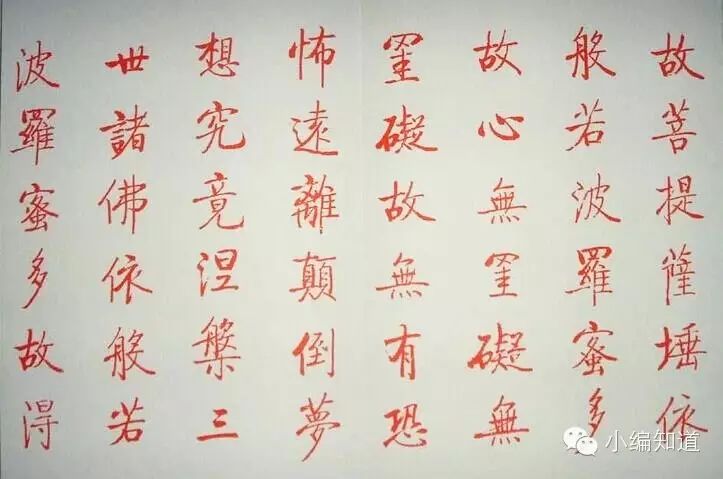 故菩提薩埵依
般若波羅蜜多
故心無罣礙無
罣礙故無有恐
怖遠離顛倒夢
想究竟涅槃三
世諸佛依般若
波羅蜜多故得
小编知道